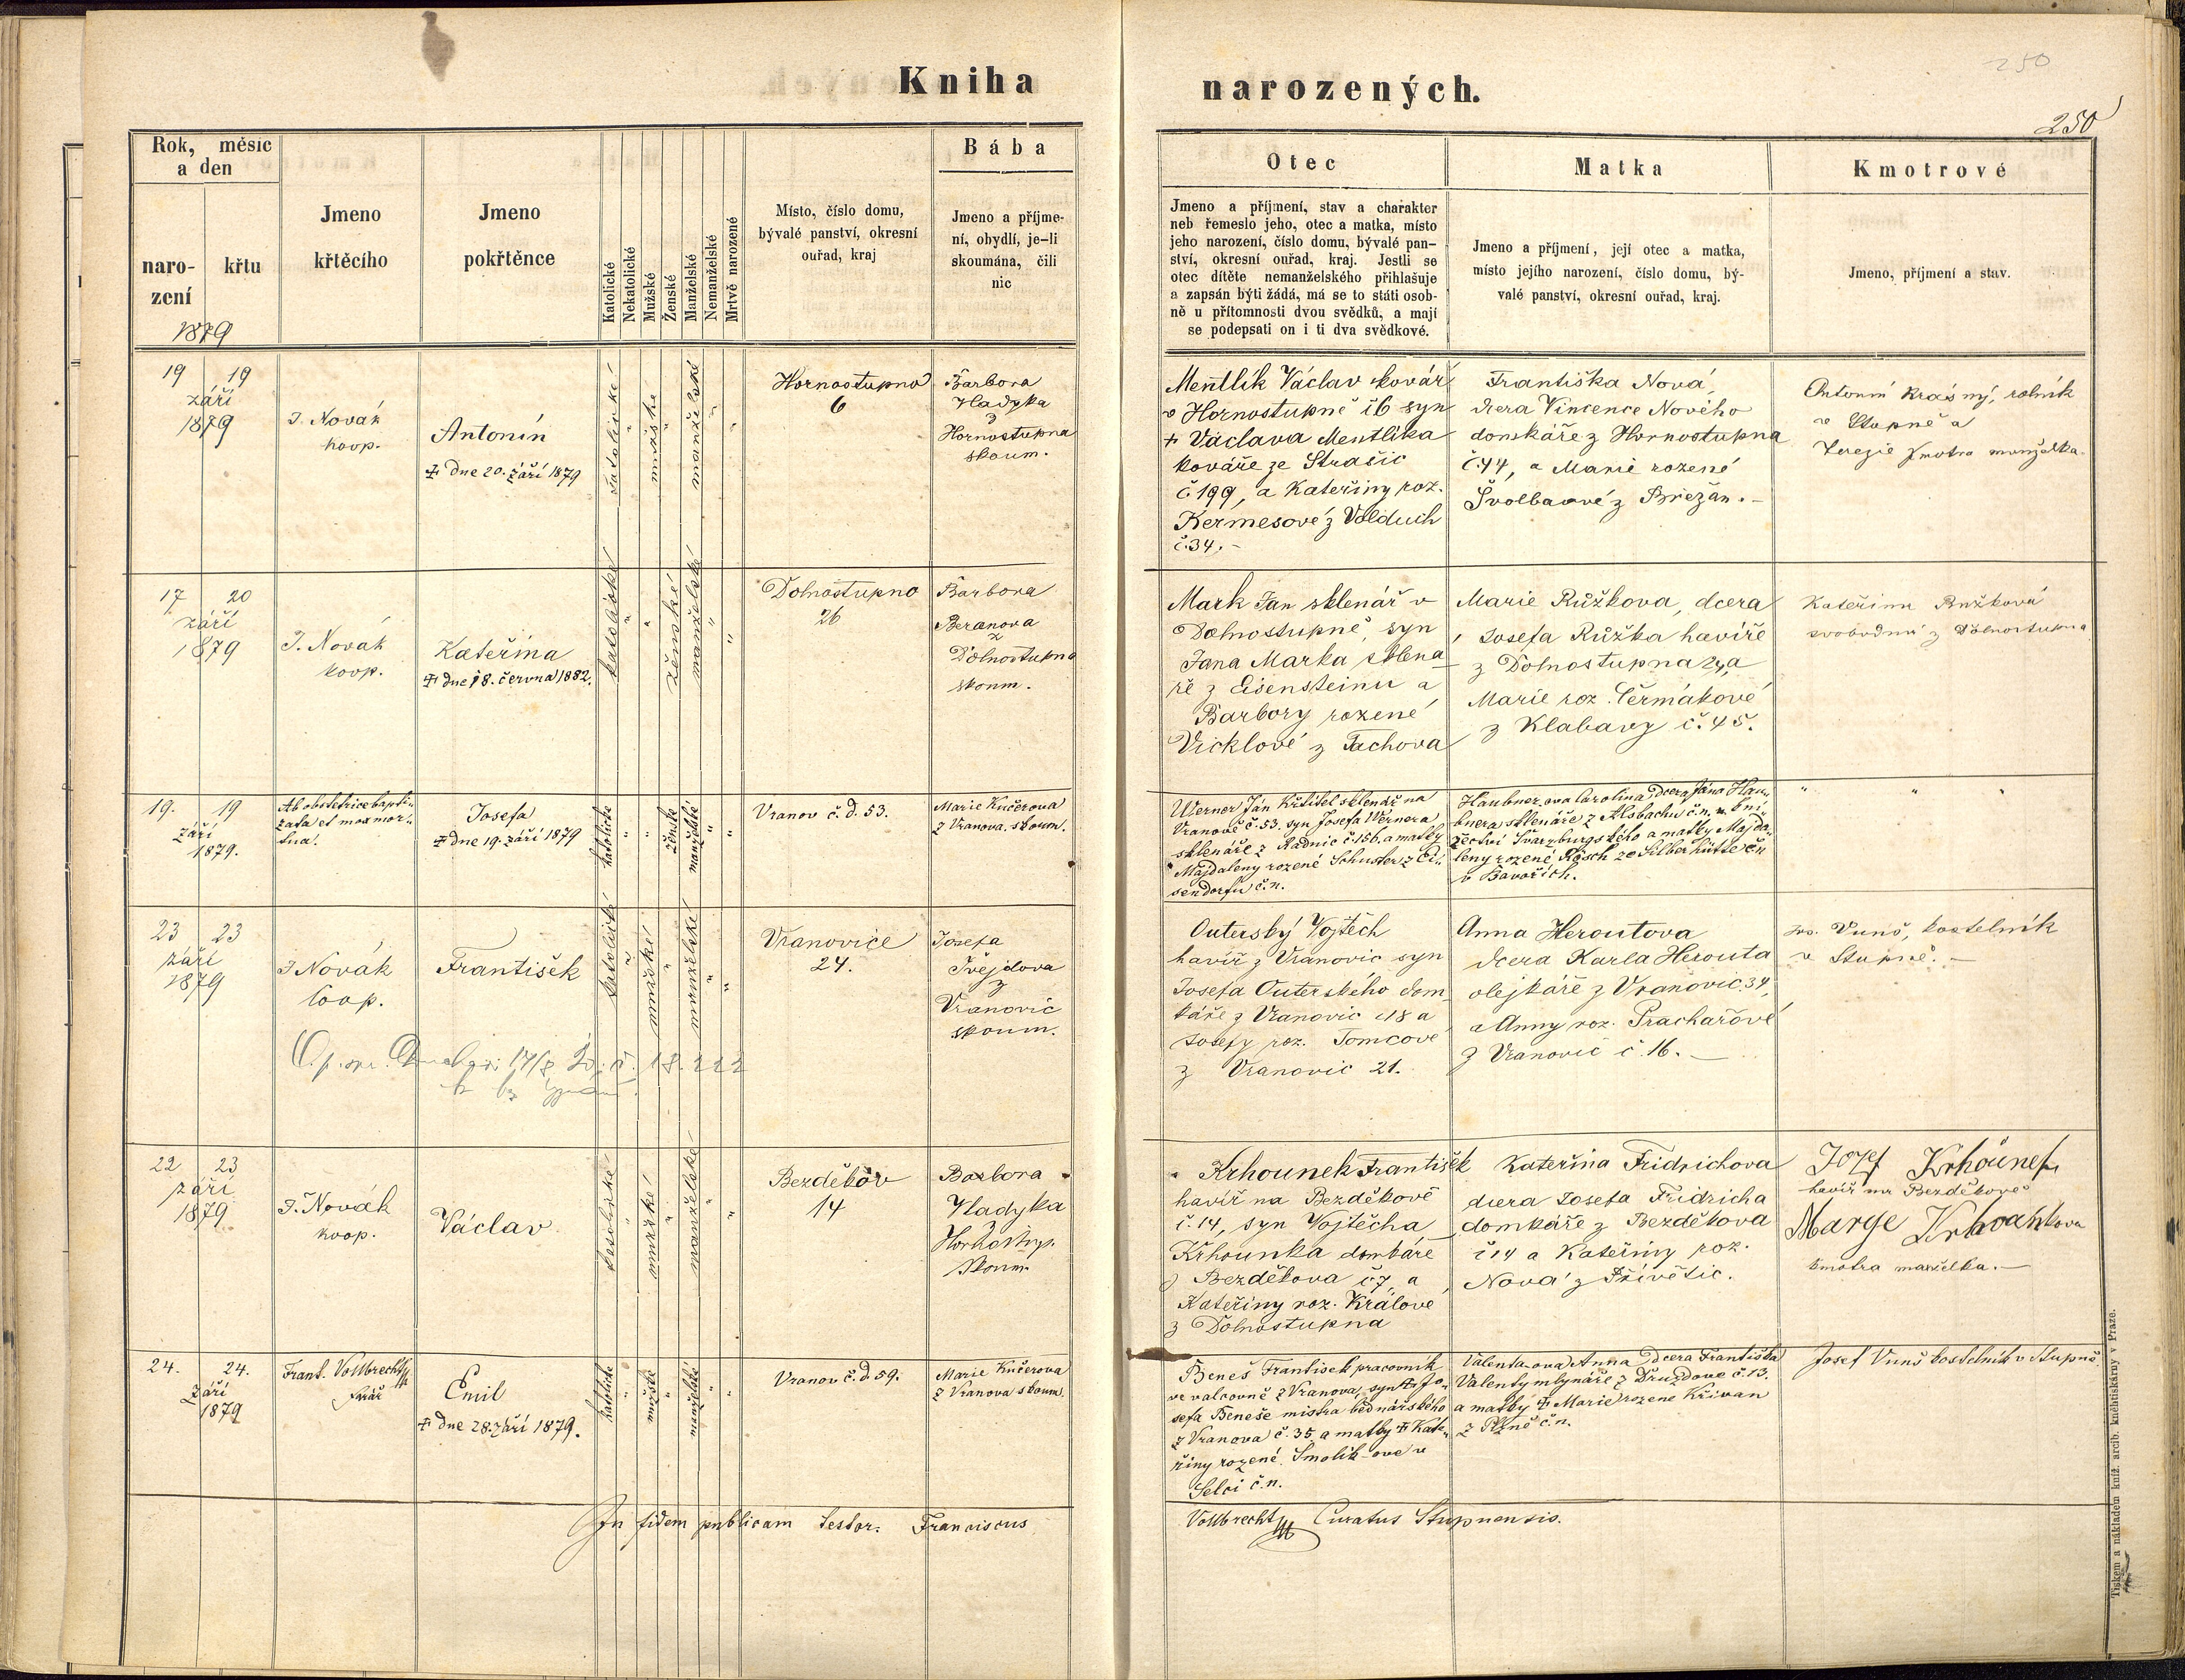 Kniha narozených.
250
250
Rok, měsíc
a den
naro-
zení
křtu
1879
Jmeno
křtěcího
Jmeno
pokřtěnce
Katolické
Nekatolické
Mužské
Ženské
Manželské
Nemanželské
Mrtvě narozené
Místo, číslo domu,
bývalé panství, okresní
ouřad, kraj
Bába
Jmeno a příjme-
ní, obydlí, je-li
skoumána, čili
nic
Otec
Jmeno a příjmení, stav a charakter
neb řemeslo jeho, otec a matka, místo
jeho narození, číslo domu, bývalé pan-
ství, okresní ouřad, kraj. Jestli se
otec dítěte nemanželského přihlašuje
a zapsán býti žádá, má se to státi osob-
ně u přítomnosti dvou svědků, a mají
se podepsati on i ti dva svědkové.
Matka
Jmeno a příjmení, její otec a matka,
místo jejího narození, číslo domu, bý-
valé panství, okresní ouřad, kraj.
Kmotrové
Jmeno, příjmení a stav.
19 19
září
1879
J. Novák
koop.
Antonín
‡ dne 20. září 1879
katolické
"
mužské
"
manželské
"
"
Hornostupno
6
Barbora
Hladyka
z
Hornostupna
skoum.
Mentlík Václav kovář
v Hornostupně č 6 syn
+ Václava Mentlíka
kováře ze Strašic
č. 199, a Kateřiny roz.
Kermesové z Volduch
č. 34. -
Františka Nová,
dcera Vincence Nového
domkáře z Hornostupna
č. 44, a Marie rozené
Švolbaové z Břežan. -
Antonín Krásný, rolník
v Stupně a
Terezie kmotra manželka.
17 20
září
1879
J. Novák
koop.
Kateřina
‡ dne 18. června 1882.
katolické
"
"
ženské
manželské
"
"
Dolnostupno
26
Barbora
Beranova
z
Dolnostupna
skoum.
Mark Jan sklenář v
Dolnostupně, syn
Jana Marka sklena-
ře z Eisensteinu a
Barbory rozené
Vicklové z Tachova
Marie Růžkova, dcera
Josefa Růžka havíře
z Dolnostupna 24, a
Marie roz. Čermákové
z Klabavy č. 45.
KateřinaRužková
svobodná z Dolnostupna
19. 19
září
1879.
Ab obstetrice bapti-
zata et mox mor-
tua.
Josefa
‡ dne 19. září 1879
katolické
"
"
ženské
manželské
"
"
Vranov č. d. 53.
Marie Kučerova
z Vranova. skoum.
Werner Jan Křtitel sklenář na
Vranově č. 53. syn Josefa Wernera
sklenáře z Radnic č. 156. a matky
Majdaleny rozené Schuster z Ei-
sendorfu č. n.
Haubner-ova Carolina dcera Jána Hau-
bnera sklenáře z Alsbachu č. n. v kní-
žectví Švarzburgského a matky Majda-
leny rozené Rösch ze Silberhütte č. n
v Bavořích.
" " "
23 23
září
1879
J Novák
koop.
František
katolické
"
mužské
"
manželské
"
"
Vranovice
24.
Josefa
Švejdova
z
Vranovic
skoum.
Outerský Vojtěch
havíř z Vranovic syn
Josefa Outerského dom-
káře z Vranovic č 18 a
Josefy roz. Tomcové
z Vranovic 21.
Anna Heroutova
dcera Karla Herouta
olejkáře z Vranovic 34,
a Anny roz. Prachařové
z Vranovic č. 16. -
Jos. Vunš, kostelník
v Stupně. -
22 23
září
1879
J. Novák
koop.
Václav
katolické
"
mužské
"
manželské
"
"
Bezděkov
14
Barbora
Hladyka
Hornostup.
skoum.
Krhounek František
havíř na Bezděkově
č. 14, syn Vojtěcha
Krhounka domkáře
z Bezděkova č 7, a
Kateřiny roz. Králové
z Dolnostupna
Kateřina Fridrichova
dcera Josefa Fridricha
domkáře z Bezděkova
č 14 a Kateřiny roz.
Nová z Přívětic.
Jozef Krhounek
havíř na Bezděkově
Marye Krhounkova
kmotra manželka. -
24. 24.
září
1879
Frant. Vollbrecht
farář
Emil
‡ dne 28. září 1879.
katolické
"
mužské
"
manželské
"
"
Vranov č. d 59.
Marie Kučerova
z Vranova skoum.
Beneš František pracovník
ve valcovně z Vranova, syn ‡ Jo-
sefa Beneše mistra bednářského
z Vranova č. 35 a matky ‡ Kate-
řiny rozené Smolík-ove v
Selci č. n.
Valenta-ova Anna dcera Františka
Valenty mlynáře z Druzdove č. 13.
a matky ‡ Marie rozene Křivan
z Plzně č. n.
Josef Vunš kostelník v Stupně
In fidem publicam testor. Franciscus
Vollbrecht Curatus Stupnensis.
Tiskem a nákladem kníž. arcib. kněhtiskárny v Praze.